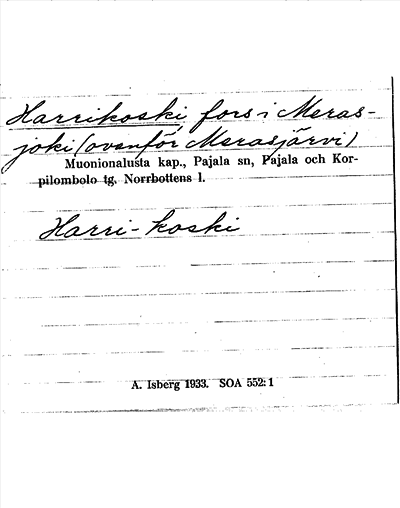 Harrikoski, fors i Meras-
joki (ovanför Merasjärvi)
Muonionalusta kap., Pajala sn, Pajala och Kor-
pilombolo tg, Norrbottens l.
Harri-koski
A. Isberg 1933. SOA 552:1